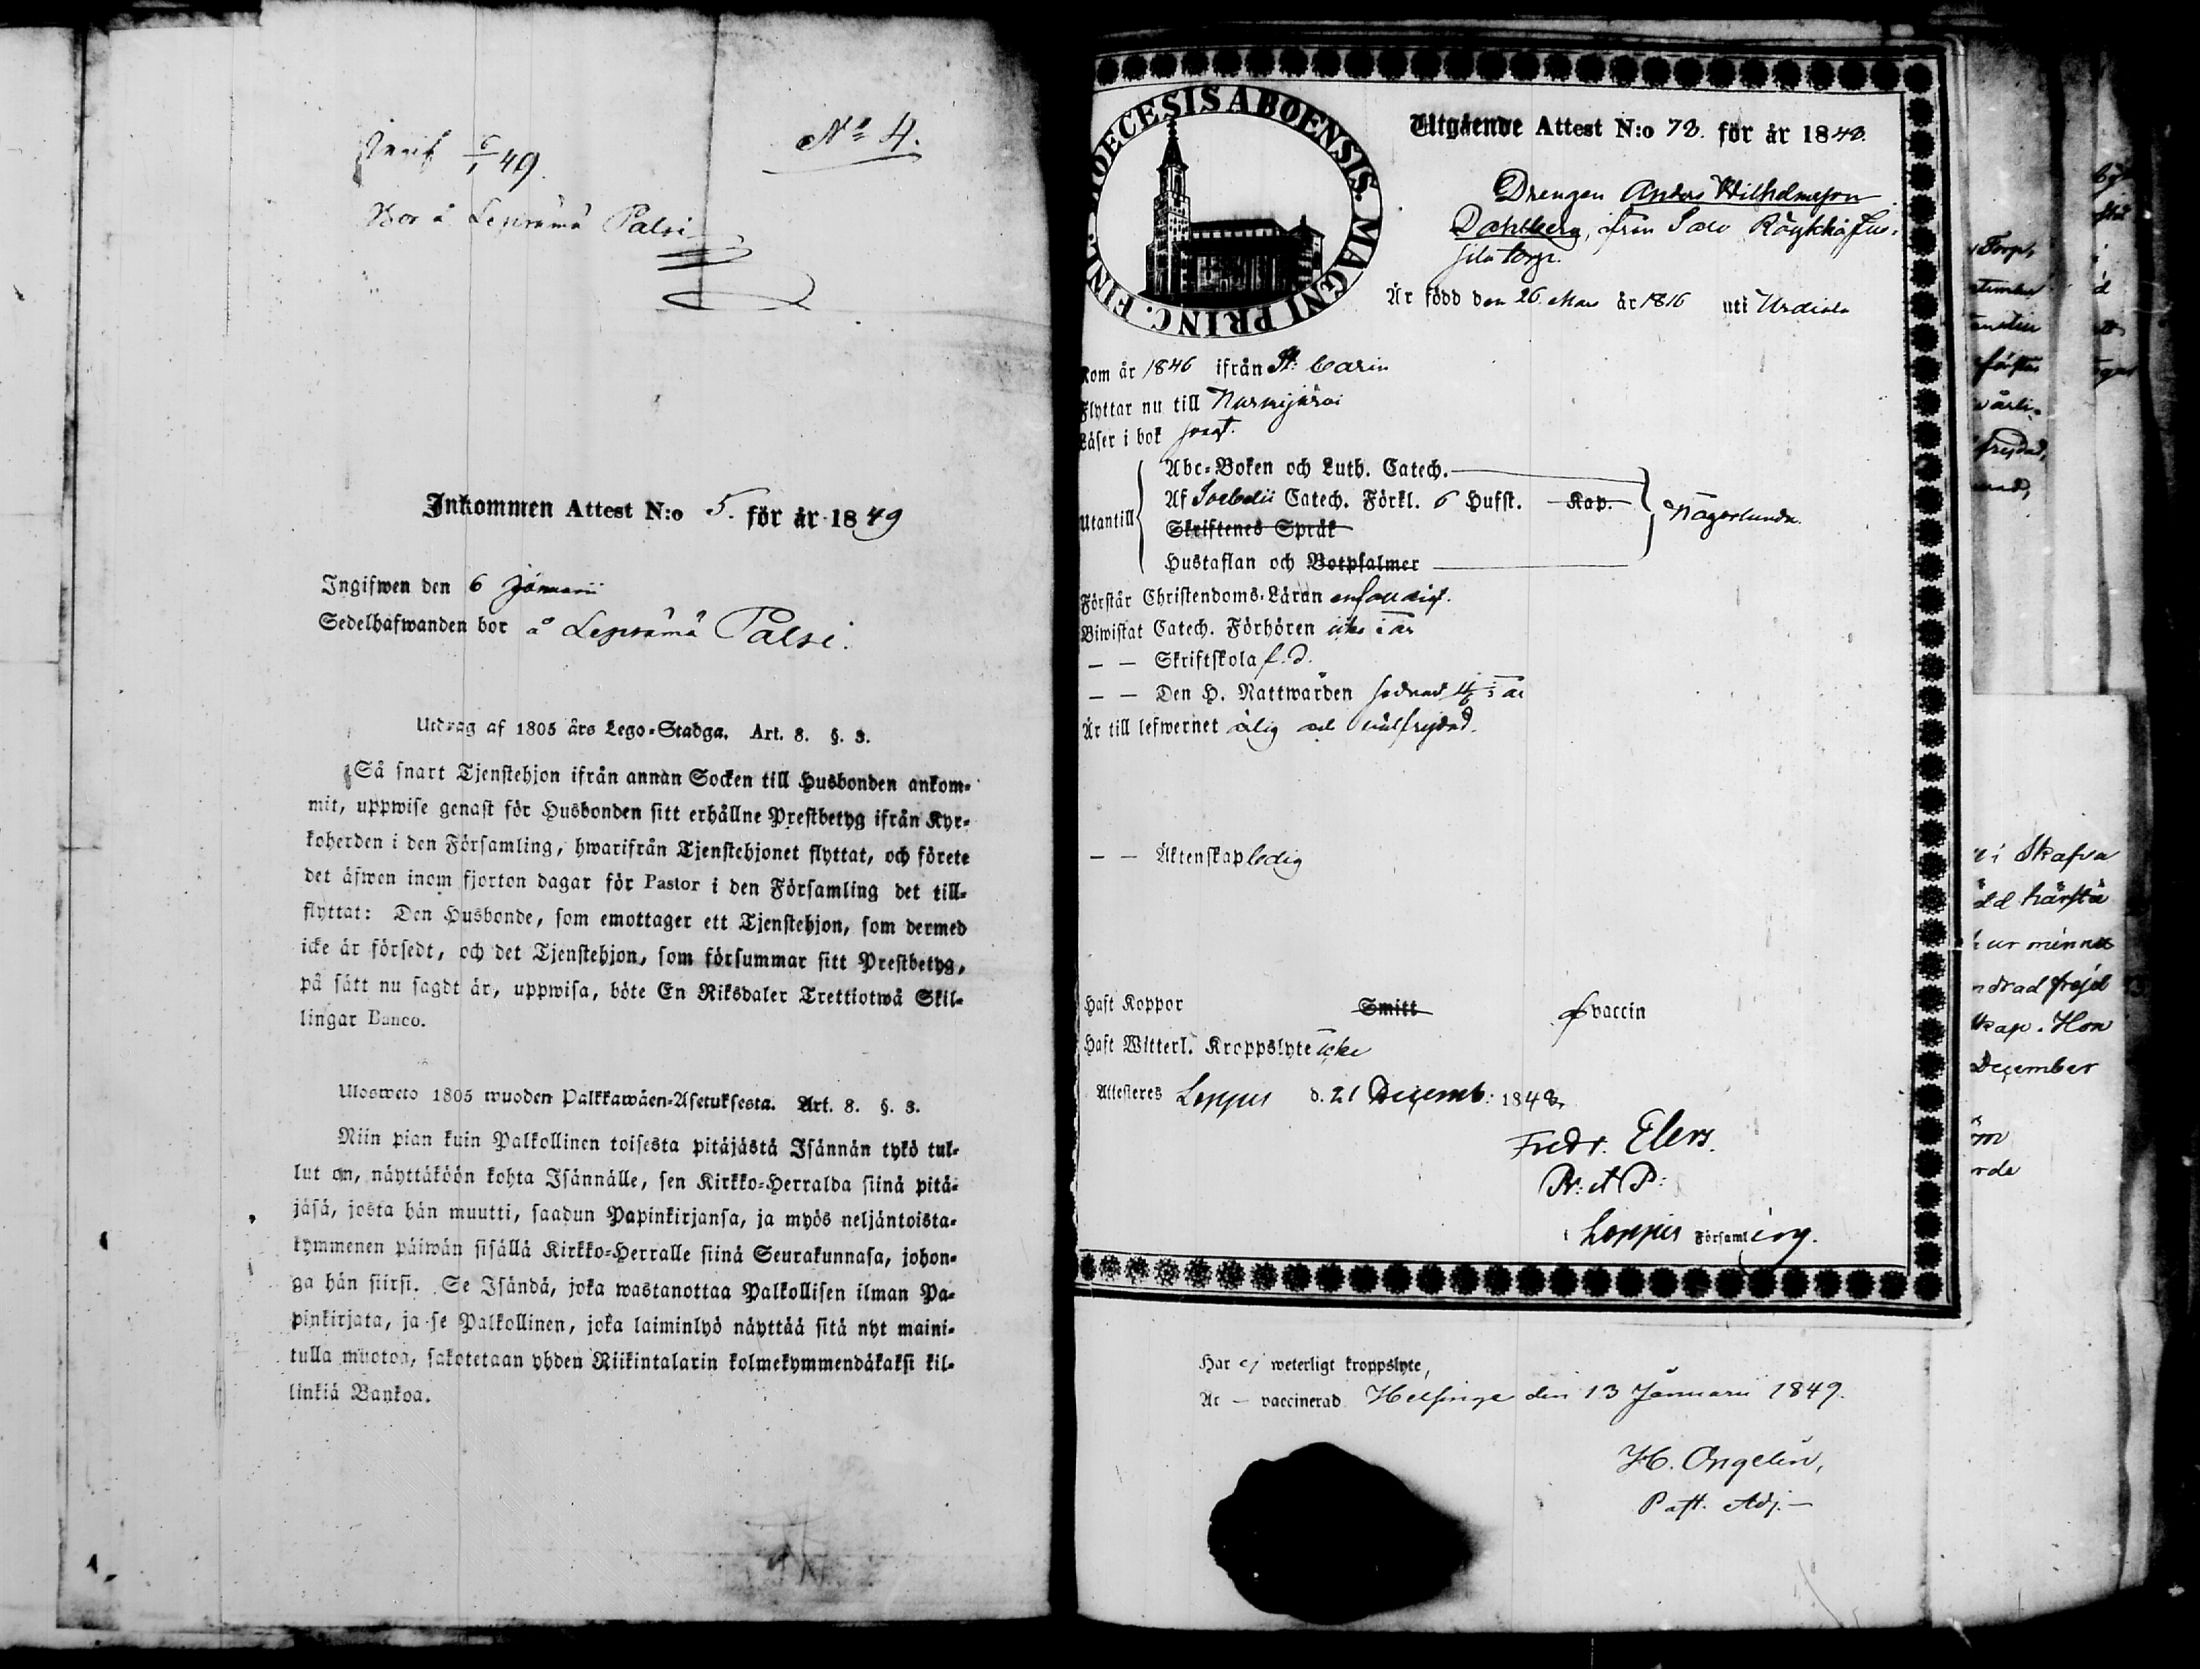 6/1 49.
No 4.
Bor å Lepsämä Palsi
Inkommen Attest N:o 5. för år 1849
Ingifwen den 6 Januarii
Sedelhafwanden bor å Lepsämä Palsi.
Utdrag af 1805 års Lego-Stadga. Art. 8. §. 3.
Så snart Tjenstehjon ifrån annan Socken till Husbonden ankom-
mit, uppwise genast för Husbonden sitt erhållne Prestbetyg ifrån Kyr-
koherden i den Församling, hwarifrån Tjenstehjonet flyttat, och förete
det äfwen inom fjorton dagar för Pastor i den Församling det till-
flyttat: Den Husbonde, som emottager ett Tjenstehjon, som dermed
icke är försedt, och det Tjenstehjon, som försummar sitt Prestbetyg,
på sätt nu sagdt är, uppwisa, böte En Riksdaler Trettiotwå Skil-
lingar Banco.
Ulosweto 1805 wuoden Palkkawäen-Asetuksesta. Art. 8. §. 3.
Niin pian kuin Palkollinen toisesta pitäjästä Isännän tykö tul-
lut on, näyttäköön kohta Isännälle, sen Kirkko-Herralda siinä pitä-
jäsä, josta hän muutti, saadun Papinkirjansa, ja myös neljäntoista-
kymmenen päiwän sisällä Kirkko-Herralle siinä Seurakunnasa, johon-
ga hän siirsi. Se Isändä, joka wastanottaa Palkollisen ilman Pa-
pinkirjata, ja se Palkollinen, joka laiminlyö näyttää sitä nyt maini-
tulla muotoa, sakotetaan yhden Riikintalarin kolmekymmendäkaksi kil-
linkiä Bankoa.
DIOECESIS ABOENSIS. MAGNI PRINC. FINL.
Utgående Attest N:o 73. för år 1848.
Drengen Anders Wilhelmsson
Dahlberg, från Salo Röykkä
torp.
Är född den 26 Mars år 1816 uti Urdiala
Kom år 1846 ifrån St. Carin
Flyttar nu till Nurmijärvi
Läser i bok
Utantill
Abc-Boken och Luth. Catech.
Af Svebelii Catech. Förkl. 6 Hufst. Kap.
Skriftenes Språk
Hustaflan och Botpsalmer
Någorlunda.
Förstår Christendoms-Läran enfaldigt.
Biwistat Catech. Förhören icke i år
— — Skriftskola f. d.
— — Den H. Nattwarden sednast i år
Är till lefwernet ärlig och välfrejdad.
— — Äktenskap ledig
Haft Koppor Smitt vaccin
Haft Witterl. Kroppslyte icke
Attesteres Loppis d. 21 Decemb. 1848.
Fredr. Elers.
Pr. et P:
i Loppis Församling.
Har ej weterligt kroppslyte,
Är — vaccinerad Helsinge den 13 Januari 1849.
H. Ongelin,
Past. Adj.—
Torp
frejdad,
i Skafva
ur minnet
ndrad frejd
kap. Hon
December
rde